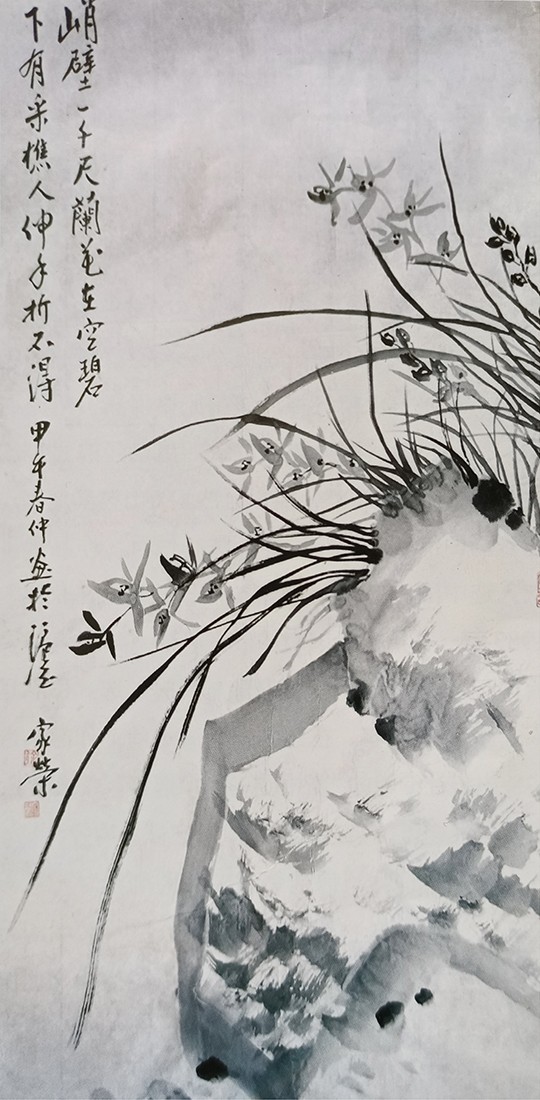 峭壁一千尺蘭花在空碧
下有采樵人伸手折不得 甲午春仲畫於
家榮